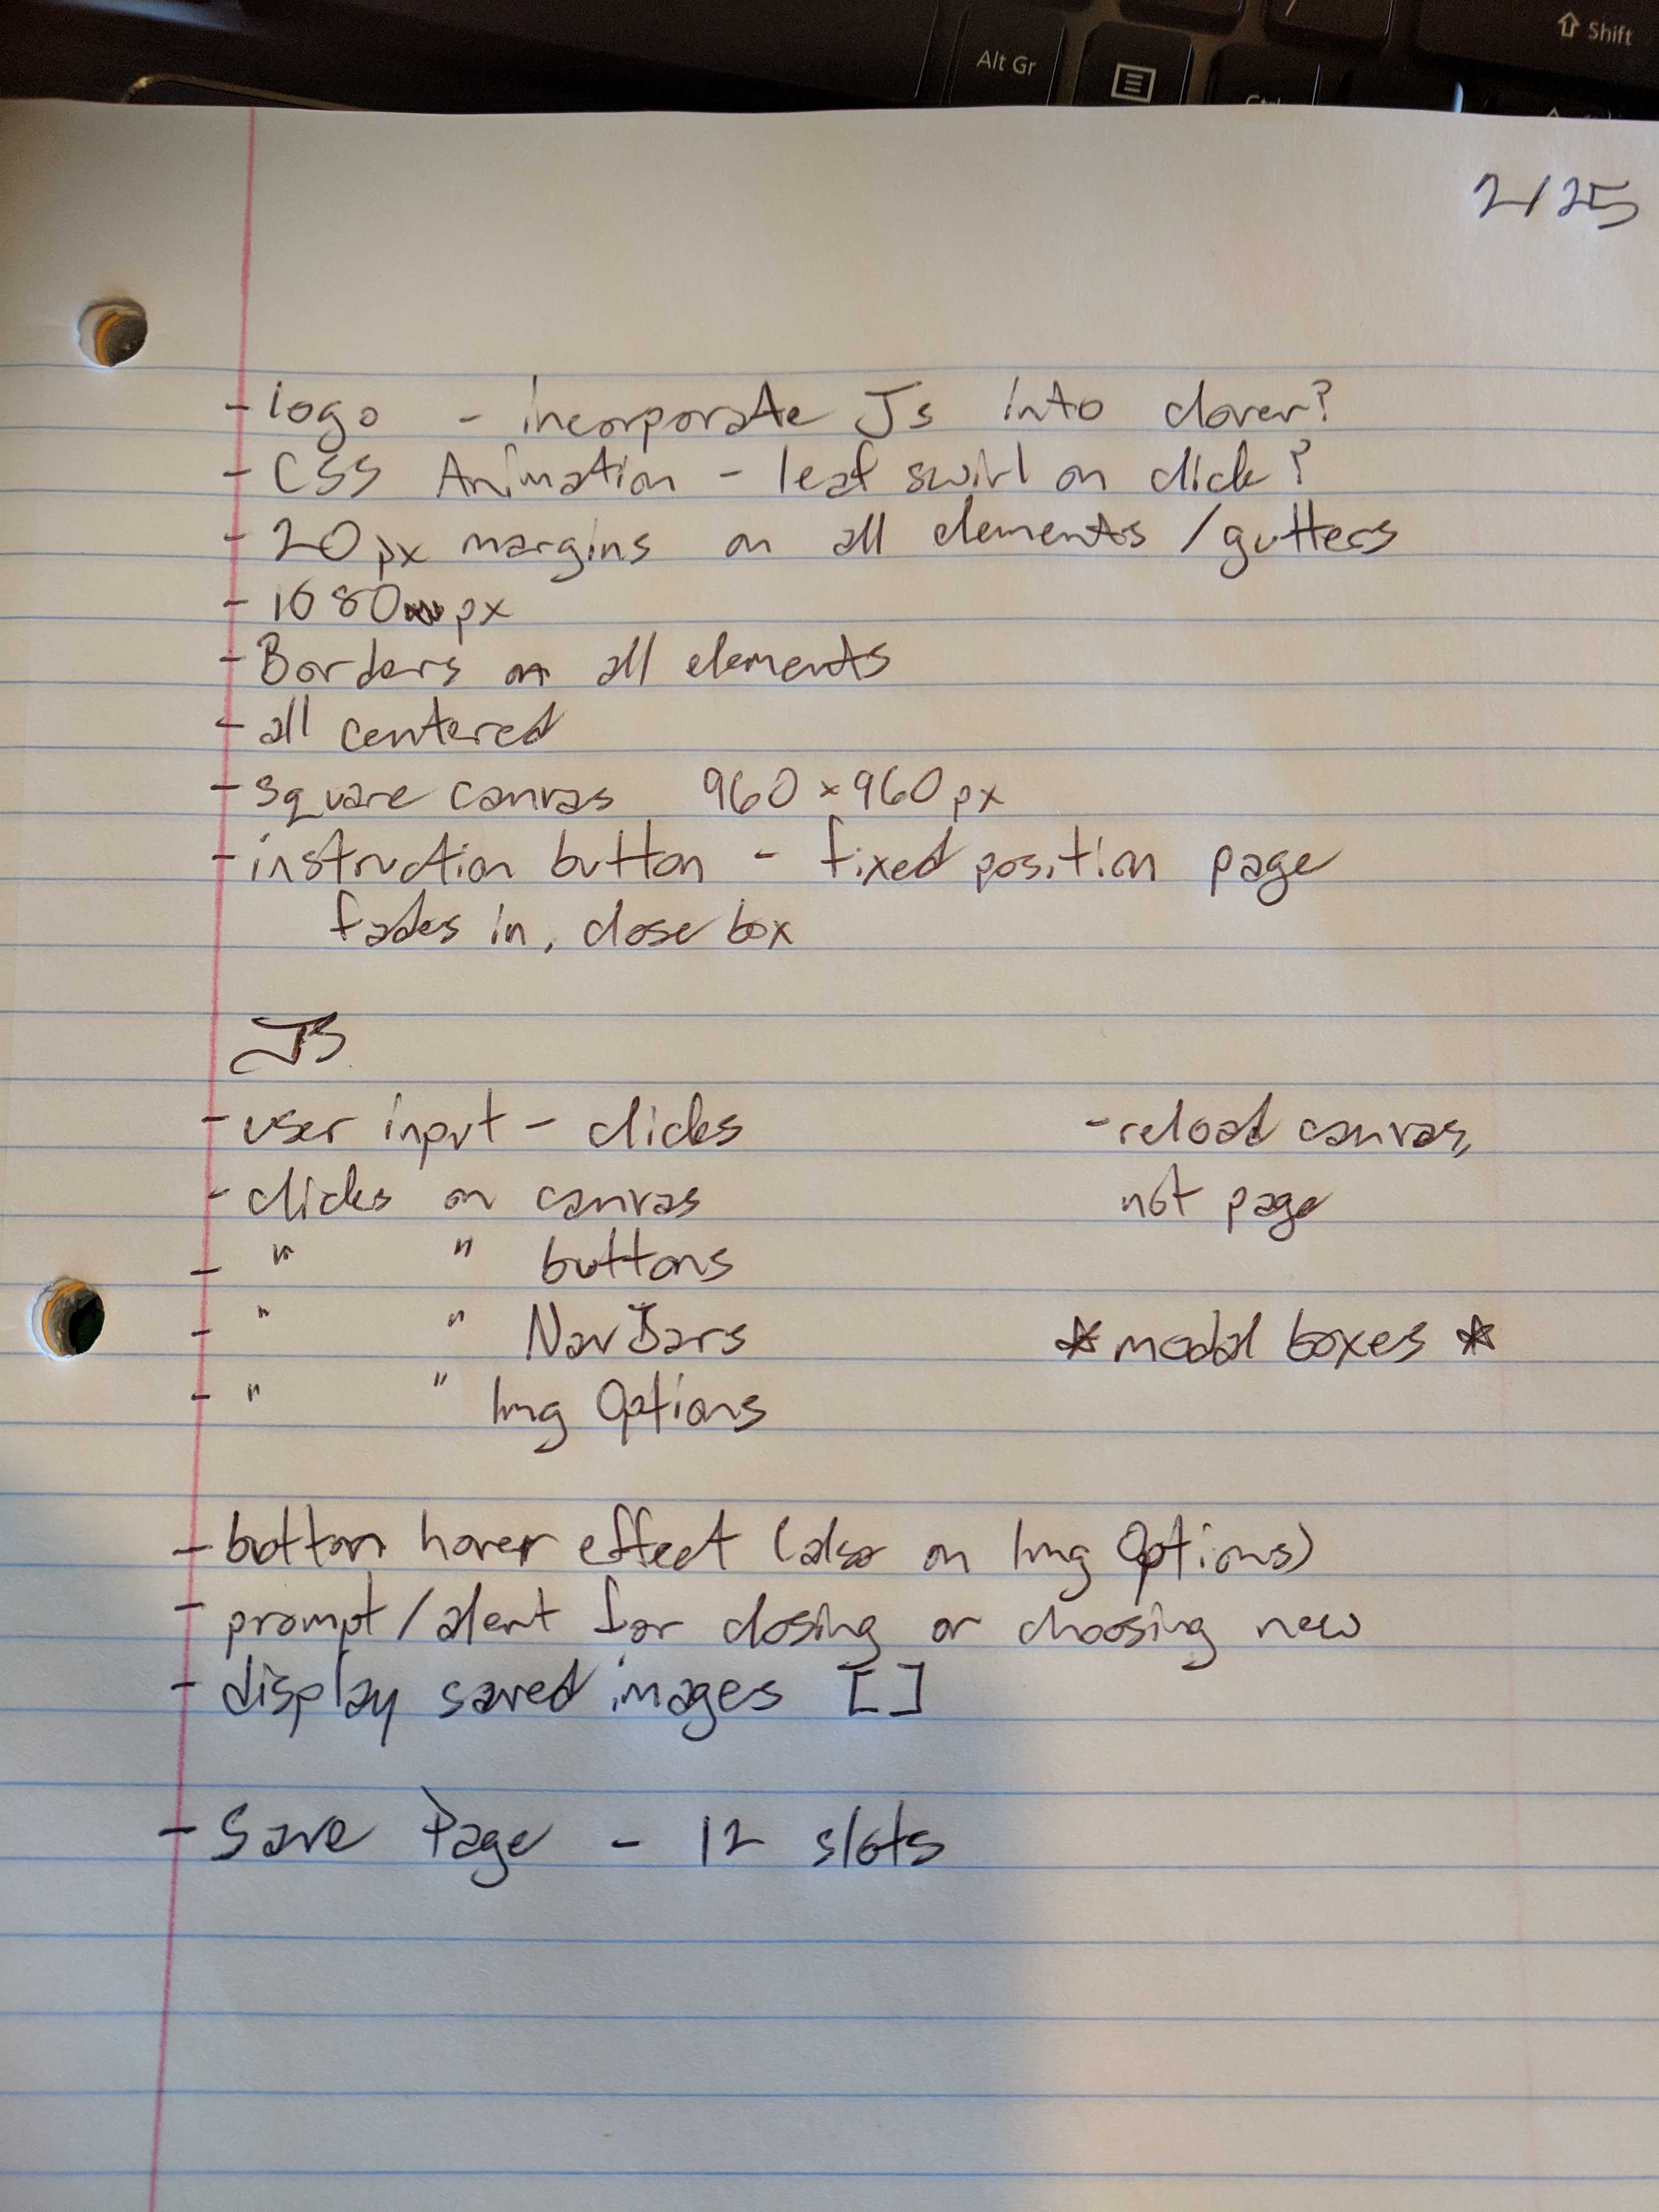 Alt Gr
Shift
2/25
- logo - incorporate Js into clover?
- CSS Animation - leaf swirl on click?
- 20px margins on all elements / gutters
- 1080 px
- Borders on all elements
- all centered
- square canvas 960 x 960 px
- instruction button - fixed position page
fades in, close box
JS
- user input - clicks
- clicks on canvas
- " " buttons
- " " NavBars
- " " Img Options
- reload canvas,
not page
* modal boxes *
- button hover effect (also on Img Options)
- prompt/alert for closing or choosing new
- display saved images [ ]
- Save Page - 12 slots